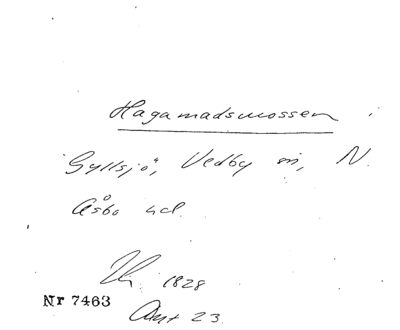 Hagamadsmossen
Gyllsjö, Vedby sn, N.
Åsbo hd.
1828
Nr 7463
Akt 23.